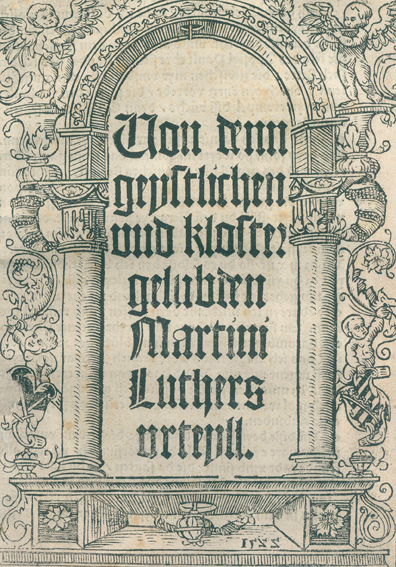 Von denn
geystlichen
vnd kloster
gelubden
Martini
Luthers
vrteyll.
1522